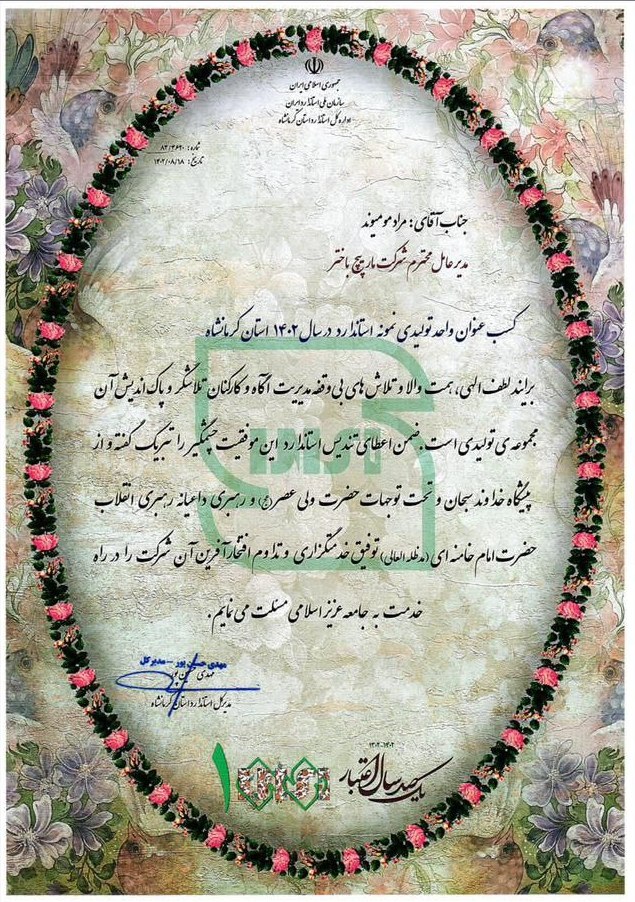 جمهوری اسلامی ایران
سازمان ملی استاندارد ایران
اداره کل استاندارد استان کرمانشاه
شماره: ۸۲/۳۶۹۰
تاریخ: ۱۴۰۲/۰۸/۱۸
جناب آقای: مراد مومیوند
مدیر عامل محترم شرکت مارپیچ باختر
کسب عنوان واحد تولیدی نمونه استاندارد در سال ۱۴۰۲ استان کرمانشاه
برایند لطف الهی، همت والا و تلاش های بی وقفه مدیریت آگاه و کارکنان تلاشگر و پاک اندیش آن
مجموعه ی تولیدی است. ضمن اعطای تندیس استاندارد این موفقیت چشمگیر را تبریک گفته و از
پیشگاه خداوند سبحان و تحت توجهات حضرت ولی عصر (عج) و رهبری داعیانه رهبری انقلاب
حضرت امام خامنه ای (مدظله العالی) توفیق خدمتگزاری و تداوم افتخارآفرین آن شرکت را در راه
خدمت به جامعه عزیز اسلامی مسئلت می نمایم.
مهدی حسین پور - مدیرکل
مهدی حسین پور
مدیرکل استاندارد استان کرمانشاه
۱۳۰۴-۱۴۰۲
یکصد سال اعتبار